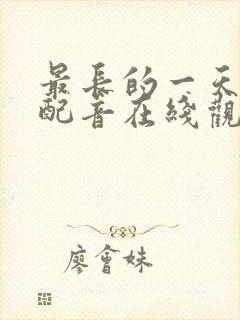 最長的一天
配音在綫觀
廖會妹